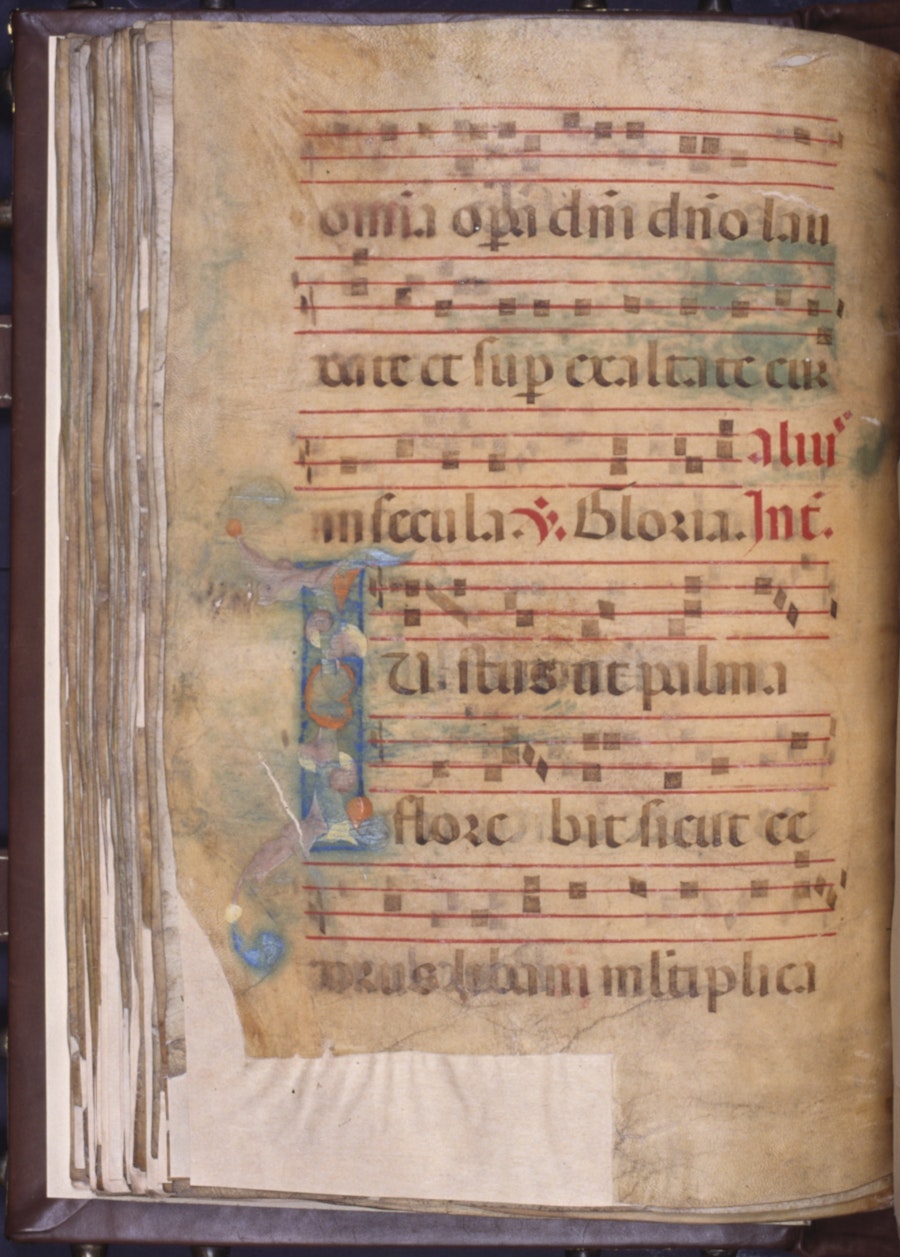 omia opa dni dno lau
date et sup exaltate eum
aliu
in secula. ℣. Gloria. Int.
IUstus ut palma
flore bit sicut ce
drus libani mltiplica